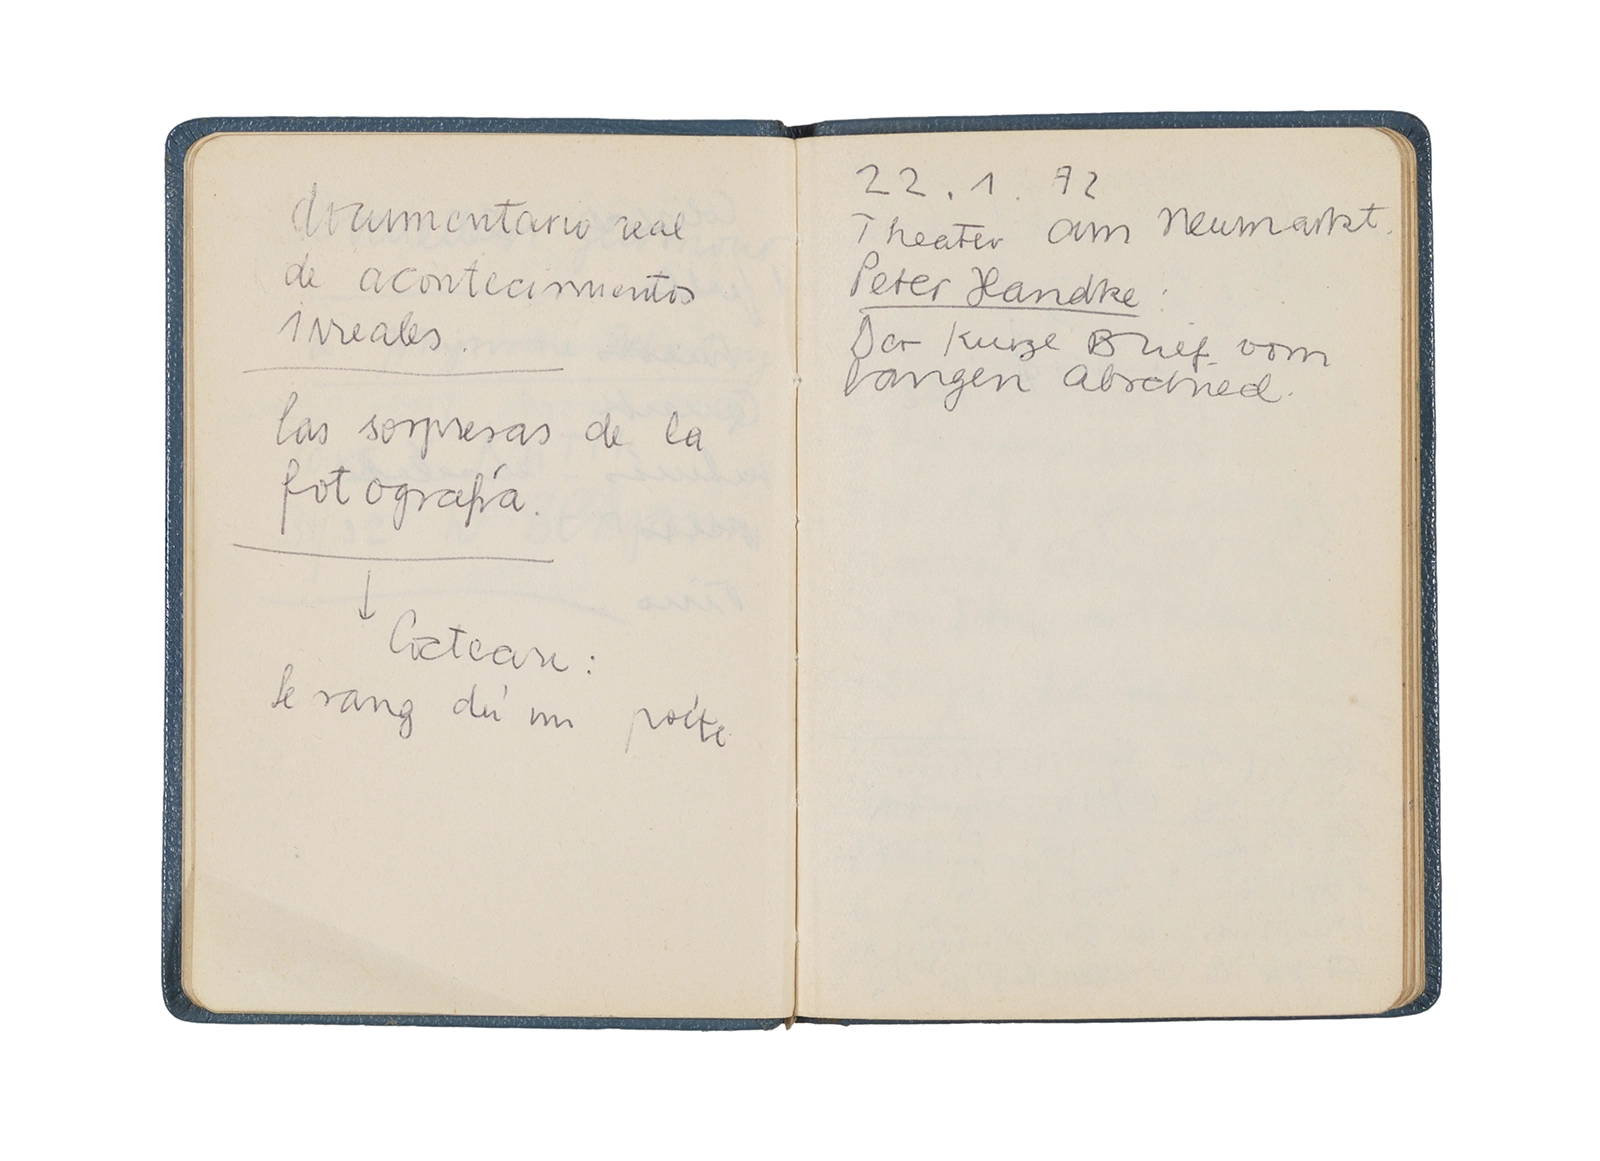 documentario real
de acontecimientos
irreales.
las sorpresas de la
fotografía.
↓
Cocteau:
le rang du un poète
22.1.72
Theater am Neumarkt.
Peter Handke:
Der Kurze Brief vom
langen Abschied.